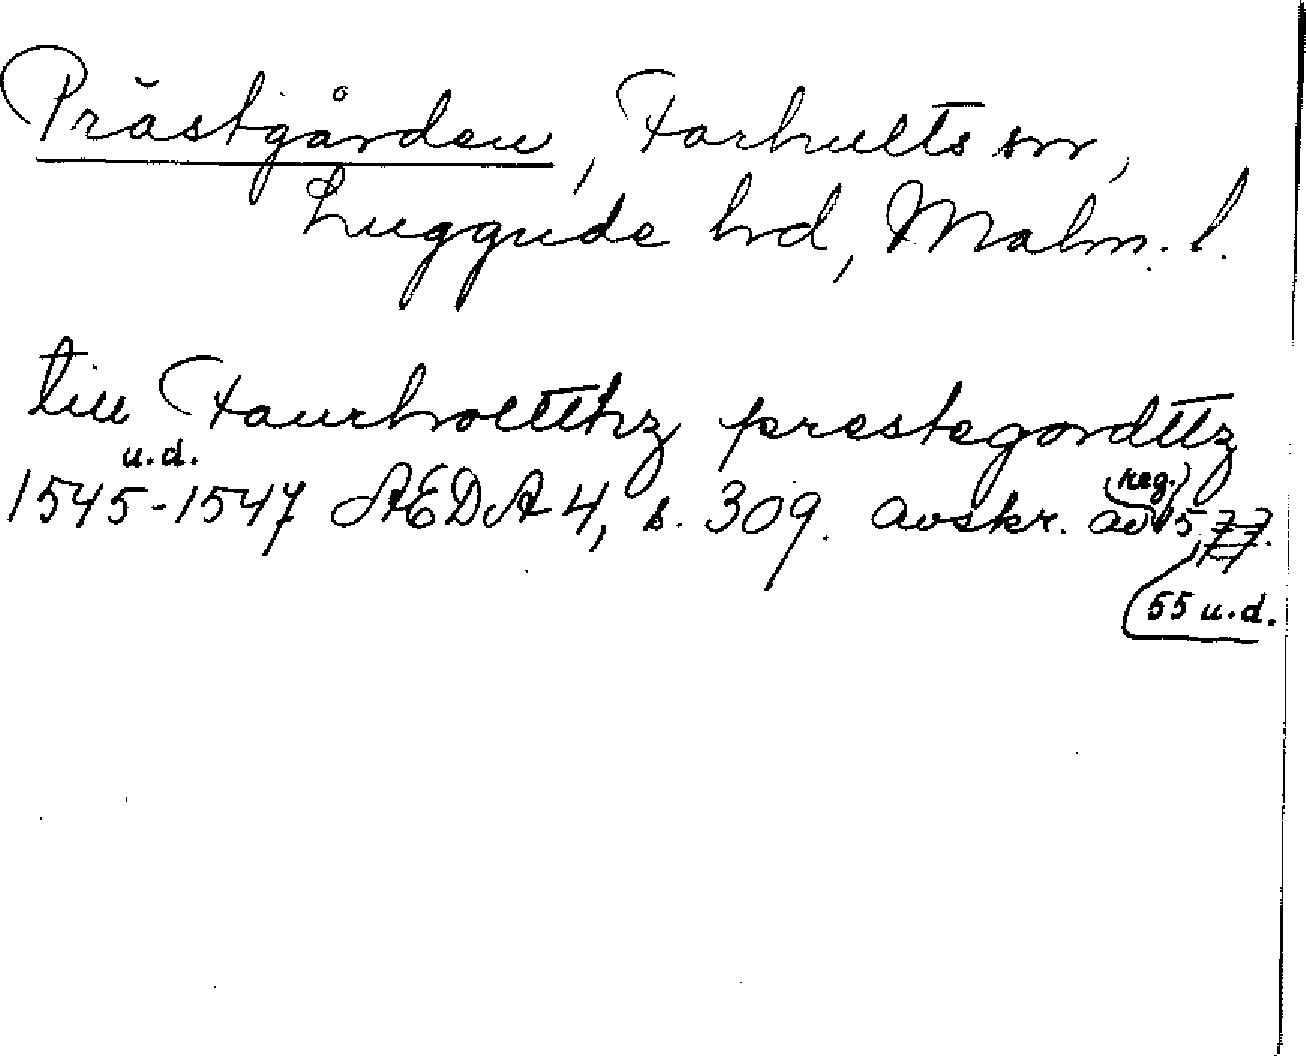 Prästgården, Farhults sn,
Luggude hd, Malm. l.
till Faurhoelthz prestegordttz
u.d.
1545-1547 AEDA 4, s. 309. avskr. av (reg.) 5
55 u.d.